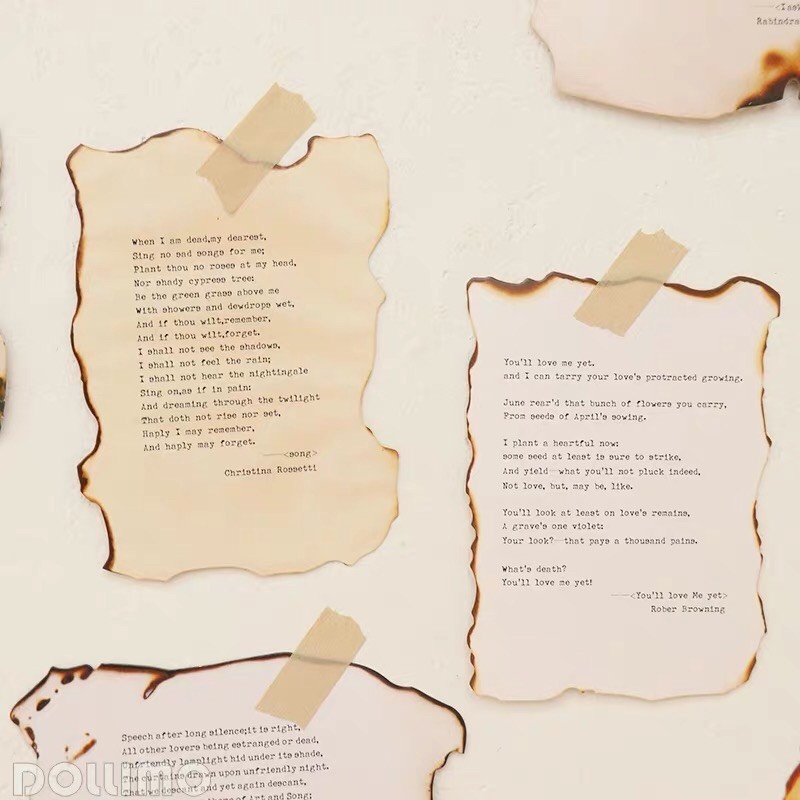 Rabindra
When I am dead,my dearest,
Sing no sad songs for me;
Plant thou no roses at my head,
Nor shady cypress tree:
Be the green grass above me
With showers and dewdrops wet,
And if thou wilt,remember,
And if thou wilt,forget.
I shall not see the shadows,
I shall not feel the rain;
I shall not hear the nightingale
Sing on,as if in pain:
And dreaming through the twilight
That doth not rise nor set,
Haply I may remember,
And haply may forget.
——<song>
Christina Rossetti
You'll love me yet,
and I can tarry your love's protracted growing.
June rear'd that bunch of flowers you carry,
From seeds of April's sowing.
I plant a heartful now:
some seed at least is sure to strike,
And yield—what you'll not pluck indeed,
Not love, but, may be, like.
You'll look at least on love's remains,
A grave's one violet:
Your look?—that pays a thousand pains.
What's death?
You'll love me yet!
——<You'll love Me yet>
Rober Browning
Speech after long silence;it is right,
All other lovers being estranged or dead,
Unfriendly lamplight hid under its shade,
The curtains drawn upon unfriendly night,
That we descant and yet again descant,
theme of Art and Song:
DOLLIMO